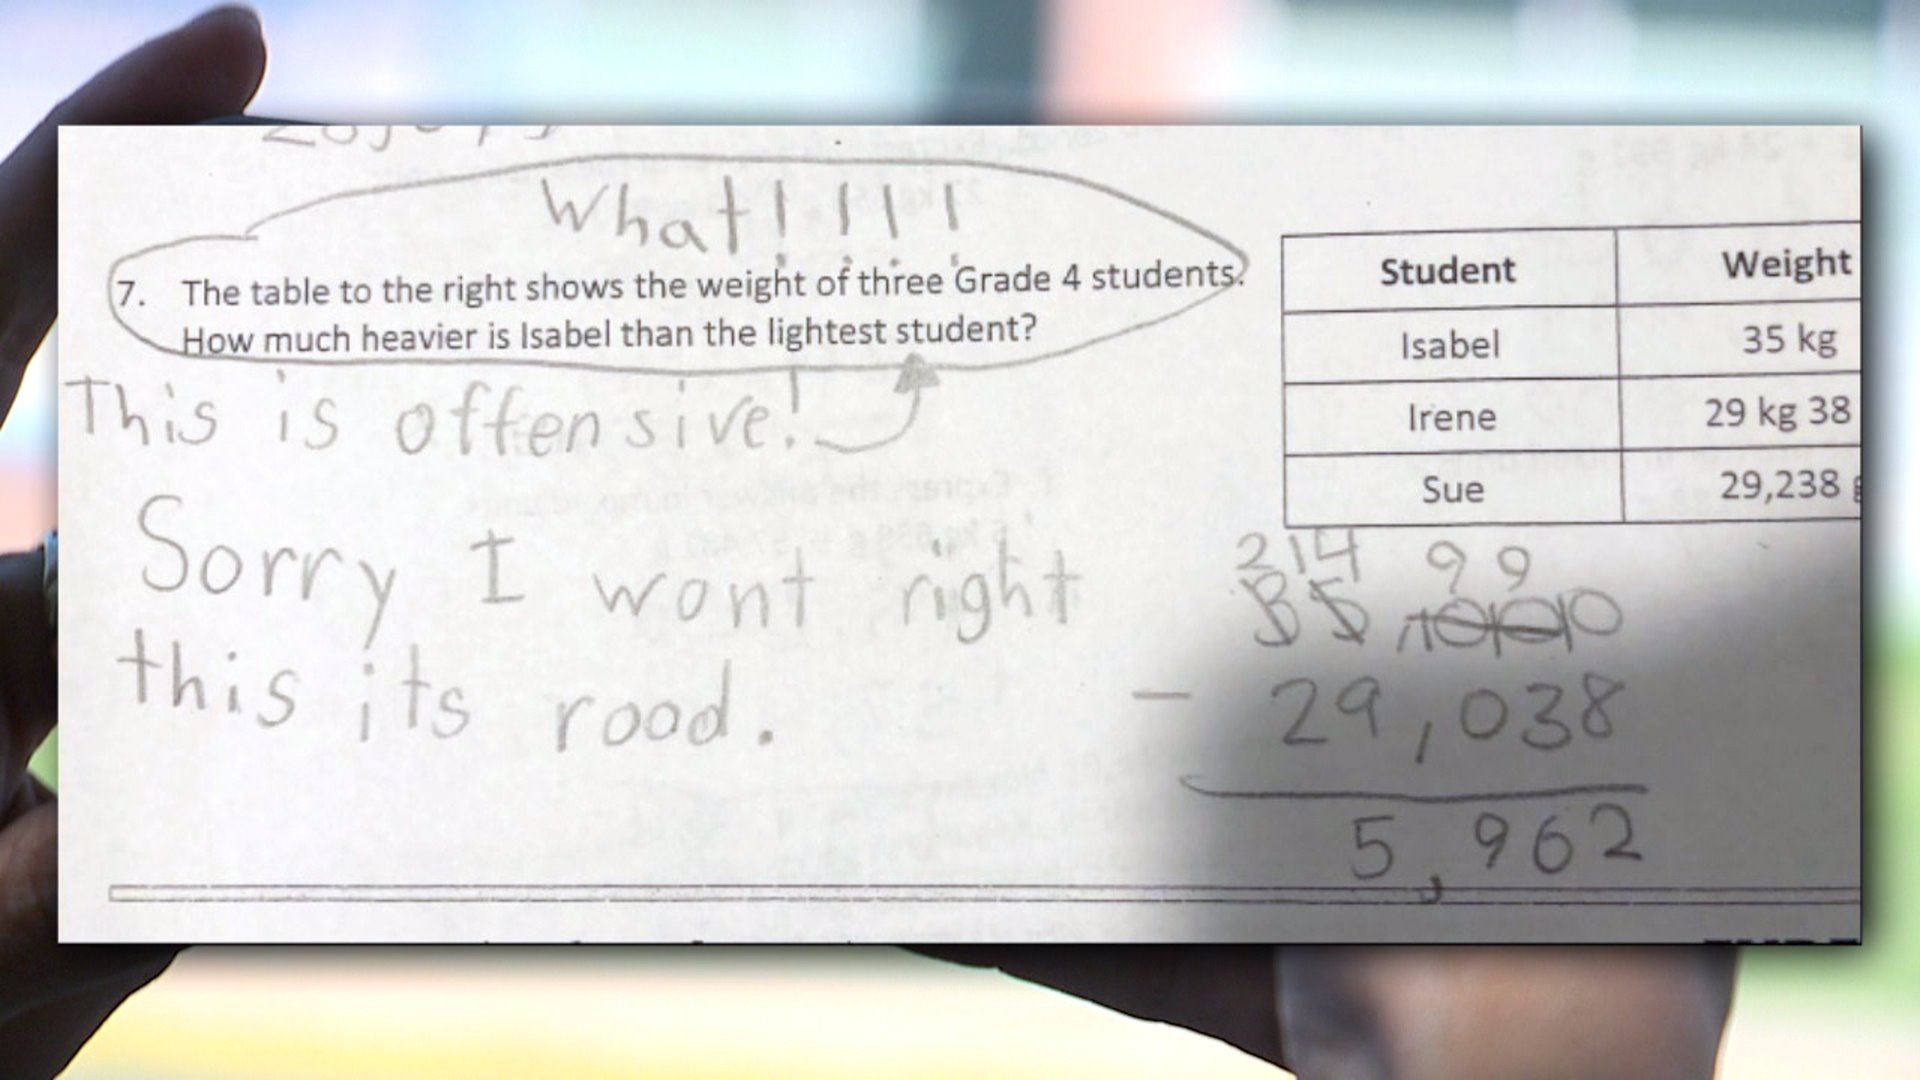 What! ! ! !
7. The table to the right shows the weight of three Grade 4 students.
How much heavier is Isabel than the lightest student?
This is offensive!
Sorry I wont right
this its rood.
Student Weight
Isabel 35 kg
Irene 29 kg 38
Sue 29,238 g
2 14 9 9
35 10 10 10
- 29,038
5,962